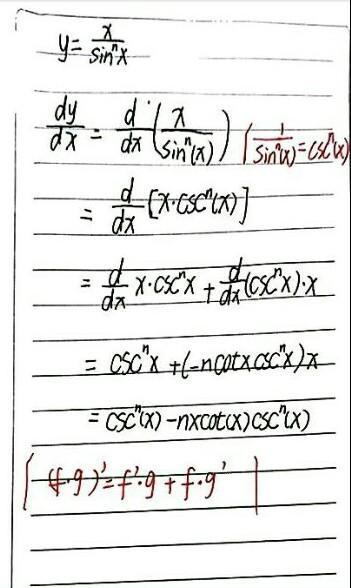 y = x/sinⁿx
dy/dx = d/dx (x/sinⁿ(x)) [1/sinⁿ(x) = cscⁿ(x)
= d/dx [x·cscⁿ(x)]
= d/dx x·cscⁿx + d/dx (cscⁿx)·x
= cscⁿx + (-ncotxcscⁿx)x
= cscⁿ(x) - nxcot(x)cscⁿ(x)
[(f·g)' = f'·g + f·g']